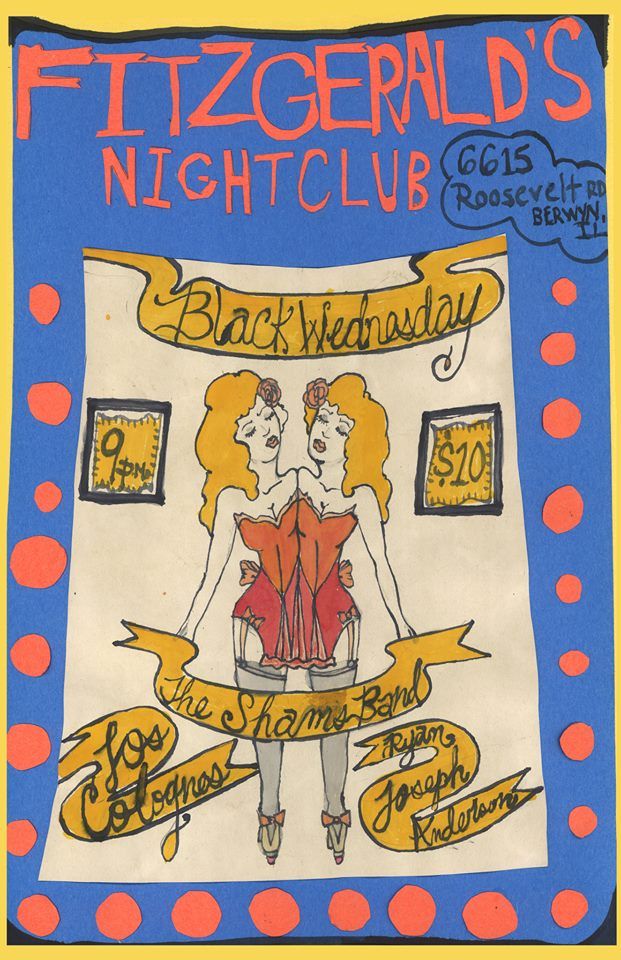 FITZGERALD'S
NIGHTCLUB
6615
Roosevelt RD
BERWYN,
IL
Black Wednesday
9 p.m.
$10
The Shams Band
Los
Colognes
Ryan
Joseph
Anderson